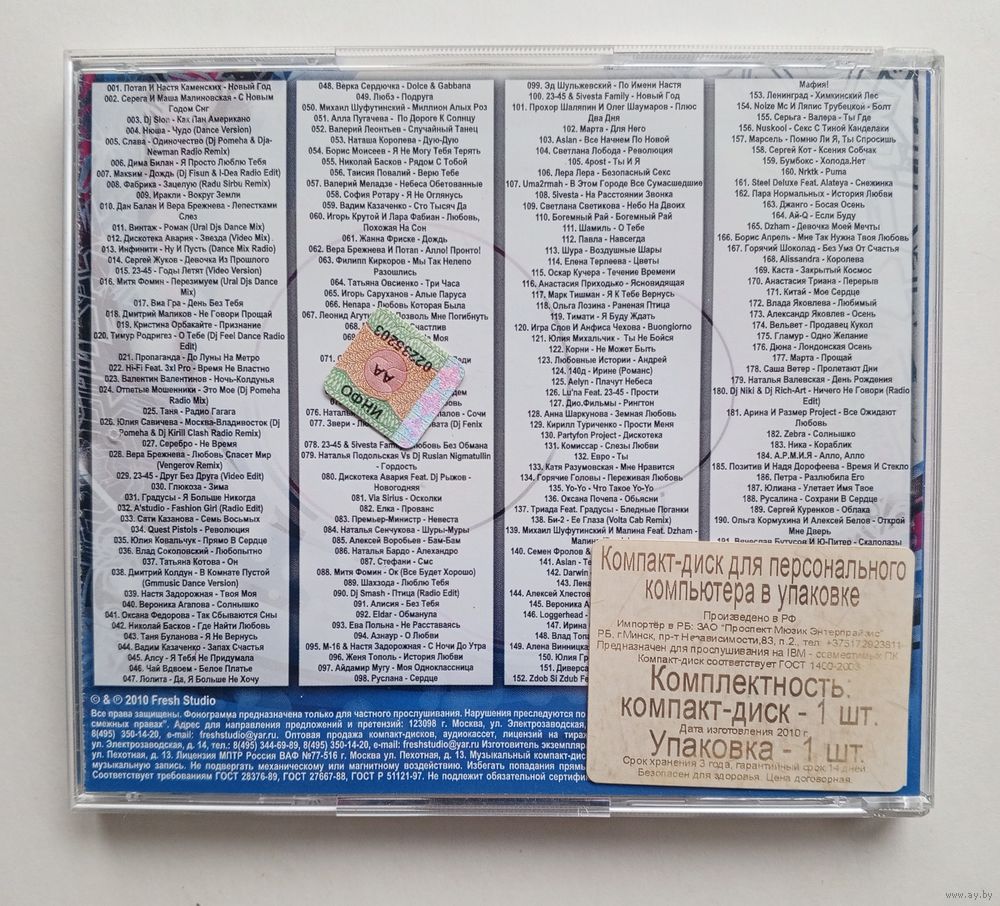 001. Потап И Настя Каменских - Новый Год
002. Серега И Маша Малиновская - С Новым
Годом Снг
003. Dj Slon - Как Пан Американо
004. Нюша - Чудо (Dance Version)
005. Слава - Одиночество (Dj Pomeha & Dja-
Newman Radio Remix)
006. Дима Билан - Я Просто Люблю Тебя
007. Максим - Дождь (Dj Fisun & I-Dea Radio Edit)
008. Фабрика - Зацелую (Radu Sirbu Remix)
009. Иракли - Вокруг Земли
010. Дан Балан И Вера Брежнева - Лепестками
Слез
011. Винтаж - Роман (Ural Djs Dance Mix)
012. Дискотека Авария - Звезда (Video Mix)
013. Инфинити - Ну И Пусть (Dance Mix Radio)
014. Сергей Жуков - Девочка Из Прошлого
015. 23-45 - Годы Летят (Video Version)
016. Митя Фомин - Перезимуем (Ural Djs Dance
Mix)
017. Виа Гра - День Без Тебя
018. Дмитрий Маликов - Не Говори Прощай
019. Кристина Орбакайте - Признание
020. Тимур Родригез - О Тебе (Dj Feel Dance Radio
Edit)
021. Пропаганда - До Луны На Метро
022. Hi-Fi Feat. 3xl Pro - Время Не Властно
023. Валентин Валентинов - Ночь-Колдунья
024. Отпетые Мошенники - Это Мое (Dj Pomeha
Radio Mix)
025. Таня - Радио Гагага
026. Юлия Савичева - Москва-Владивосток (Dj
Pomeha & Dj Kirill Clash Radio Remix)
027. Серебро - Не Время
028. Вера Брежнева - Любовь Спасет Мир
(Vengerov Remix)
029. 23-45 - Друг Без Друга (Video Edit)
030. Глюкоза - Зима
031. Градусы - Я Больше Никогда
032. A'studio - Fashion Girl (Radio Edit)
033. Сати Казанова - Семь Восьмых
034. Quest Pistols - Революция
035. Юлия Ковальчук - Прямо В Сердце
036. Влад Соколовский - Любопытно
037. Татьяна Котова - Он
038. Дмитрий Колдун - В Комнате Пустой
(Gmmusic Dance Version)
039. Настя Задорожная - Твоя Моя
040. Вероника Агапова - Солнышко
041. Оксана Федорова - Так Сбываются Сны
042. Николай Басков - Где Найти Любовь
043. Таня Буланова - Я Не Вернусь
044. Вадим Казаченко - Запах Счастья
045. Алсу - Я Тебя Не Придумала
046. Чай Вдвоем - Белое Платье
047. Лолита - Да, Я Больше Не Хочу
048. Верка Сердючка - Dolce & Gabbana
049. Любэ - Подруга
050. Михаил Шуфутинский - Миллион Алых Роз
051. Алла Пугачева - По Дороге К Солнцу
052. Валерий Леонтьев - Случайный Танец
053. Наташа Королева - Дую-Дую
054. Борис Моисеев - Я Не Могу Тебя Терять
055. Николай Басков - Рядом С Тобой
056. Таисия Повалий - Верю Тебе
057. Валерий Меладзе - Небеса Обетованные
058. София Ротару - Я Не Оглянусь
059. Вадим Казаченко - Сто Тысяч Да
060. Игорь Крутой И Лара Фабиан - Любовь,
Похожая На Сон
061. Жанна Фриске - Дождь
062. Вера Брежнева И Потап - Алло! Пронто!
063. Филипп Киркоров - Мы Так Нелепо
Разошлись
064. Татьяна Овсиенко - Три Часа
065. Игорь Саруханов - Алые Паруса
066. Непара - Любовь Которая Была
067. Леонид Агут Позволь Мне Погибнуть
068. Счастлив
Моя
071.
076. Наталь Сочи
077. Звери - (Dj Fenix
078. 23-45 & 5ivesta Fam Любовь Без Обмана
079. Наталья Подольская Vs Dj Ruslan Nigmatullin
- Гордость
080. Дискотека Авария Feat. Dj Рыжов -
Новогодняя
081. Via Sirius - Осколки
082. Елка - Прованс
083. Премьер-Министр - Невеста
084. Наталья Сенчукова - Шуры-Муры
085. Алексей Воробьев - Бам-Бам
086. Наталья Бардо - Алехандро
087. Стефани - Смс
088. Митя Фомин - Ок (Все Будет Хорошо)
089. Шахзода - Люблю Тебя
090. Dj Smash - Птица (Radio Edit)
091. Алисия - Без Тебя
092. Eldar - Обманула
093. Ева Польна - Не Расставаясь
094. Азнаур - О Любви
095. М-16 & Настя Задорожная - С Ночи До Утра
096. Женя Тополь - История Любви
097. Айдамир Мугу - Моя Одноклассница
098. Руслана - Сердце
099. Эд Шульжевский - По Имени Настя
100. 23-45 & 5ivesta Family - Новый Год
101. Прохор Шаляпин И Олег Шаумаров - Плюс
Два Дня
102. Марта - Для Него
103. Asian - Все Начнем По Новой
104. Светлана Лобода - Революция
105. 4post - Ты И Я
106. Лера Лера - Безопасный Секс
107. Uma2rmah - В Этом Городе Все Сумасшедшие
108. 5ivesta - На Расстоянии
109. Светлана Светикова - Небо На Двоих
110. Богемный Рай - Богемный Рай
111. Шамиль - О Тебе
112. Павла - Навсегда
113. Шура - Воздушные Шары
114. Елена Терлеева - Цветы
115. Оскар Кучера - Течение Времени
116. Анастасия Приходько - Ясновидящая
117. Марк Тишман - Я К Тебе Вернусь
118. Ольга Лозина - Раненая Птица
119. Тимати - Я Буду Ждать
120. Игра Слов И Анфиса Чехова - Buongiorno
121. Юлия Михальчик - Ты Не Бойся
122. Корни - Не Может Быть
123. Любовные Истории - Андрей
124. 140д - Ирине (Романс)
125. Aelyn - Плачут Небеса
126. Lu'na Feat. 23-45 - Прости
127. Дио.Фильмы - Рингтон
128. Анна Шаркунова - Земная Любовь
129. Кирилл Туриченко - Прости Меня
130. Partyfon Project - Дискотека
131. Комиссар - Слезы Любви
132. Евро - Ты
133. Катя Разумовская - Мне Нравится
134. Горячие Головы - Переживая Любовь
135. Yo-Yo - Что Такое Yo-Yo
136. Оксана Почепа - Обьясни
137. Триада Feat. Градусы - Бледные Фонари
138. Би-2 - Ее Глаза (Volta Cab Remix)
139. Михаил Шуфутинский И Малина Feat. Dzham -
140. Семен Фролов &
141. Asian - Те
142. Darwin
143. Лена
144. Алексей Хлестов
145. Вероника А
146. Loggerhead -
147. Ирина
148. Влад Топа
149. Алена Винницка
150. Юлия
151. Диверса
152. Zdob Si Zdub Fe
Мафия!
153. Ленинград - Химкинский Лес
154. Noize Mc И Ляпис Трубецкой - Болт
155. Серьга - Валера - Ты Где
156. Nuskool - Секс С Тиной Канделаки
157. Марсель - Помню Ли Я, Ты Спросишь
158. Сергей Кот - Ксения Собчак
159. Бумбокс - Холода.Нет
160. Nrktk - Puma
161. Steel Deluxe Feat. Alateya - Снежинка
162. Пара Нормальных - История Любви
163. Джанго - Босая Осень
164. Ай-Q - Если Буду
165. Dzham - Девочка Моей Мечты
166. Борис Апрель - Мне Так Нужна Твоя Любовь
167. Горячий Шоколад - Без Ума От Счастья
168. Alissandra - Королева
169. Каста - Закрытый Космос
170. Анастасия Триана - Перерыв
171. Китай - Мое Сердце
172. Влада Яковлева - Любимый
173. Александр Яковлев - Осень
174. Вельвет - Продавец Кукол
175. Гламур - Одно Желание
176. Дюна - Лондонская Осень
177. Марта - Прощай
178. Саша Ветер - Пролетают Дни
179. Наталья Валевская - День Рождения
180. Dj Niki & Dj Rich-Art - Ничего Не Говори (Radio
Edit)
181. Арина И Размер Project - Все Ожидают
Любовь
182. Zebra - Солнышко
183. Ника - Кораблик
184. А.Р.М.И.Я - Алло, Алло
185. Позитив И Надя Дорофеева - Время И Стекло
186. Петра - Разлюбила Его
187. Юлиана - Улетает Имя Твое
188. Русалина - Сохрани В Сердце
189. Сергей Куренков - Облака
190. Ольга Кормухина И Алексей Белов - Открой
Мне Дверь
191. Вячеслав Бутусов И Ю-Питер - Скалолазы
0223S303
АА
ИНФО
© & ℗ 2010 Fresh Studio
Все права защищены. Фонограмма предназначена только для частного прослушивания. Нарушения преследуются по
смежных правах". Адрес для направления предложений и претензий: 123098 г. Москва, ул. Электрозаводская,
8(495) 350-14-20, e-mail: freshstudio@yar.ru. Оптовая продажа компакт-дисков, аудиокассет, лицензий на тираж
ул. Электрозаводская, д. 14, тел.: 8(495) 344-69-89, 8(495) 350-14-20, e-mail: freshstudio@yar.ru Изготовитель экземпляр
ул. Пехотная, д. 13. Лицензия МПТР России ВАФ №77-516 г. Москва ул. Пехотная, д. 13. Музыкальный компакт-дис
музыкальную запись. Не подвергать механическому или магнитному воздействию. Избегать попадания прямы
Соответствует требованиям ГОСТ 28376-89, ГОСТ 27667-88, ГОСТ Р 51121-97. Не подлежит обязательной сертифи
Компакт-диск для персонального
компьютера в упаковке
Произведено в РФ
Импортёр в РБ: ЗАО "Проспект Мюзик Энтерпрайзис"
РБ, г.Минск, пр-т Независимости,83, п.2., тел: +375172923811
Предназначен для прослушивания на IBM - совместимых ПК
Компакт-диск соответствует ГОСТ 1400-2003
Комплектность:
компакт-диск - 1 шт.
Дата изготовления 2010 г
Упаковка - 1 шт.
Срок хранения 3 года, гарантийный срок 14 дней
Безопасен для здоровья. Цена договорная.
www.ay.by